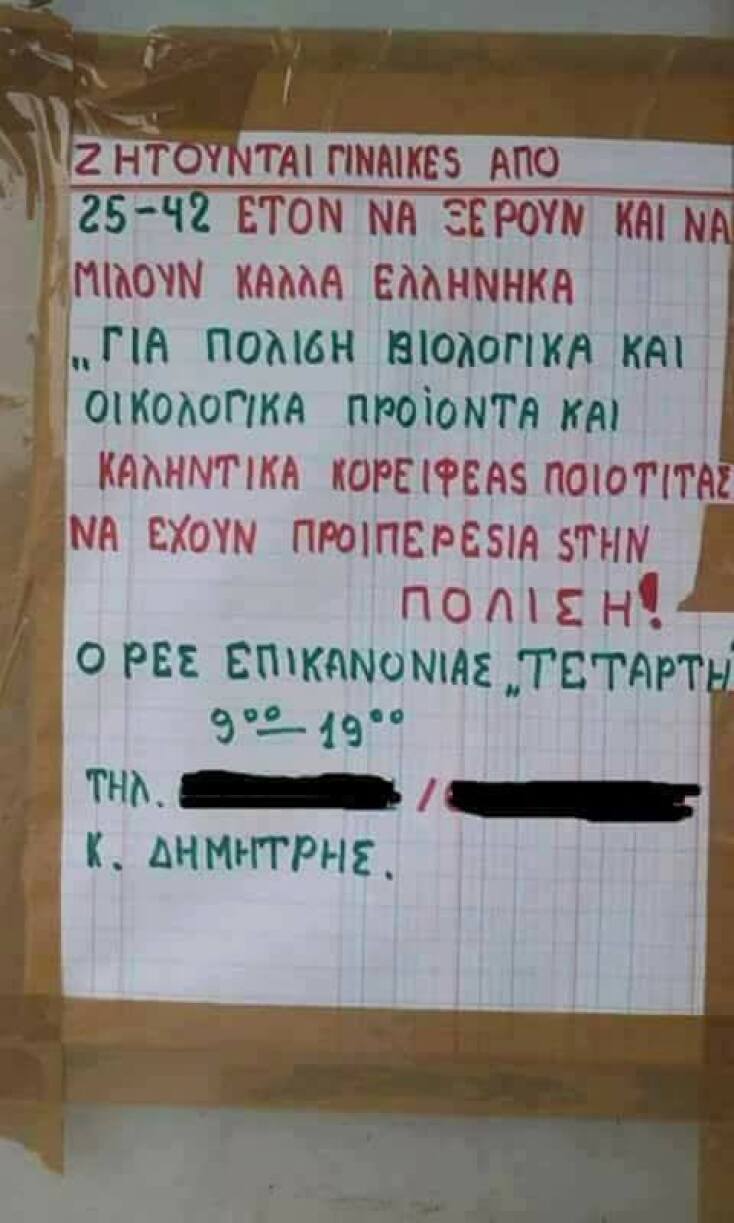 ΖΗΤΟΥΝΤΑΙ ΓΙΝΑΙΚΕS ΑΠΟ
25-42 ΕΤΟΝ ΝΑ ΞΕΡΟΥΝ ΚΑΙ ΝΑ
ΜΙΛΟΥΝ ΚΑΛΛΑ ΕΛΛΗΝΗΚΑ
„ΓΙΑ ΠΟΛΙΣΗ ΒΙΟΛΟΓΙΚΑ ΚΑΙ
ΟΙΚΟΛΟΓΙΚΑ ΠΡΟΪΟΝΤΑ ΚΑΙ
ΚΑΛΗΝΤΙΚΑ ΚΟΡΕΙΦΕΑS ΠΟΙΟΤΙΤΑΣ
ΝΑ ΕΧΟΥΝ ΠΡΟΙΠΕΡΕSΙΑ SΤΗΝ
ΠΟΛΙΣΗ!
Ο ΡΕΣ ΕΠΙΚΑΝΟΝΙΑΣ „ΤΕΤΑΡΤΗ"
9⁰⁰-19⁰⁰
ΤΗΛ. /
Κ. ΔΗΜΗΤΡΗΣ.